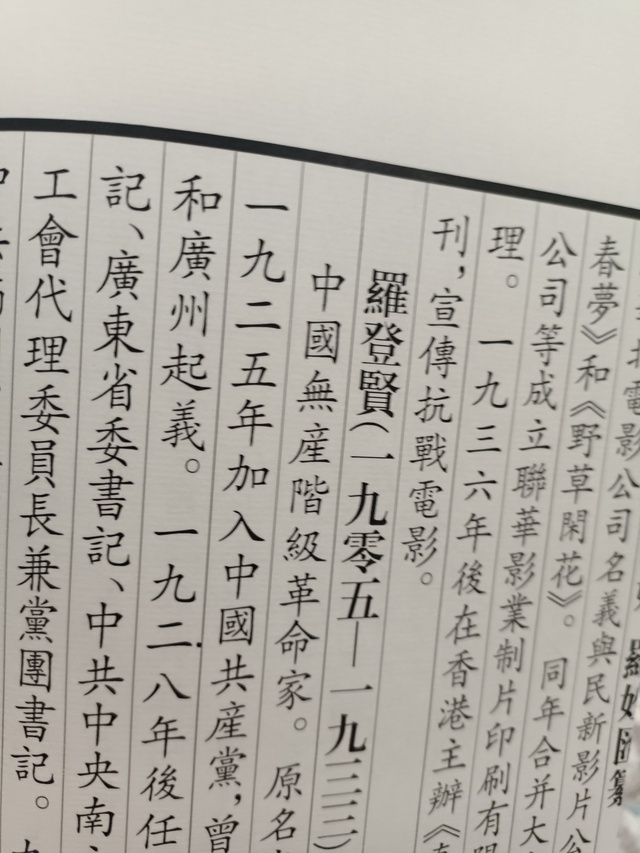 北電影公司名義與民新影片公
春夢》和《野草閑花》。同年合并大
公司等成立聯華影業制片印刷有
理。一九三六年後在香港主辦《
刊，宣傳抗戰電影。
羅登賢（一九零五—一九三三）
中國無産階級革命家。原名
一九二五年加入中國共産黨，曾
和廣州起義。一九二八年後任
記、廣東省委書記、中共中央南
工會代理委員長兼黨團書記。